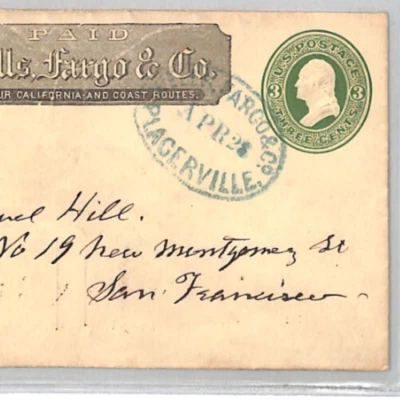 PAID
lls, Fargo & Co.
UR CALIFORNIA AND COAST ROUTES.
FARGO & CO.
APR 28
PLACERVILLE.
U.S. POSTAGE
3 3
THREE CENTS
uel Hill.
No 19 New Montgomery St
San Francisco